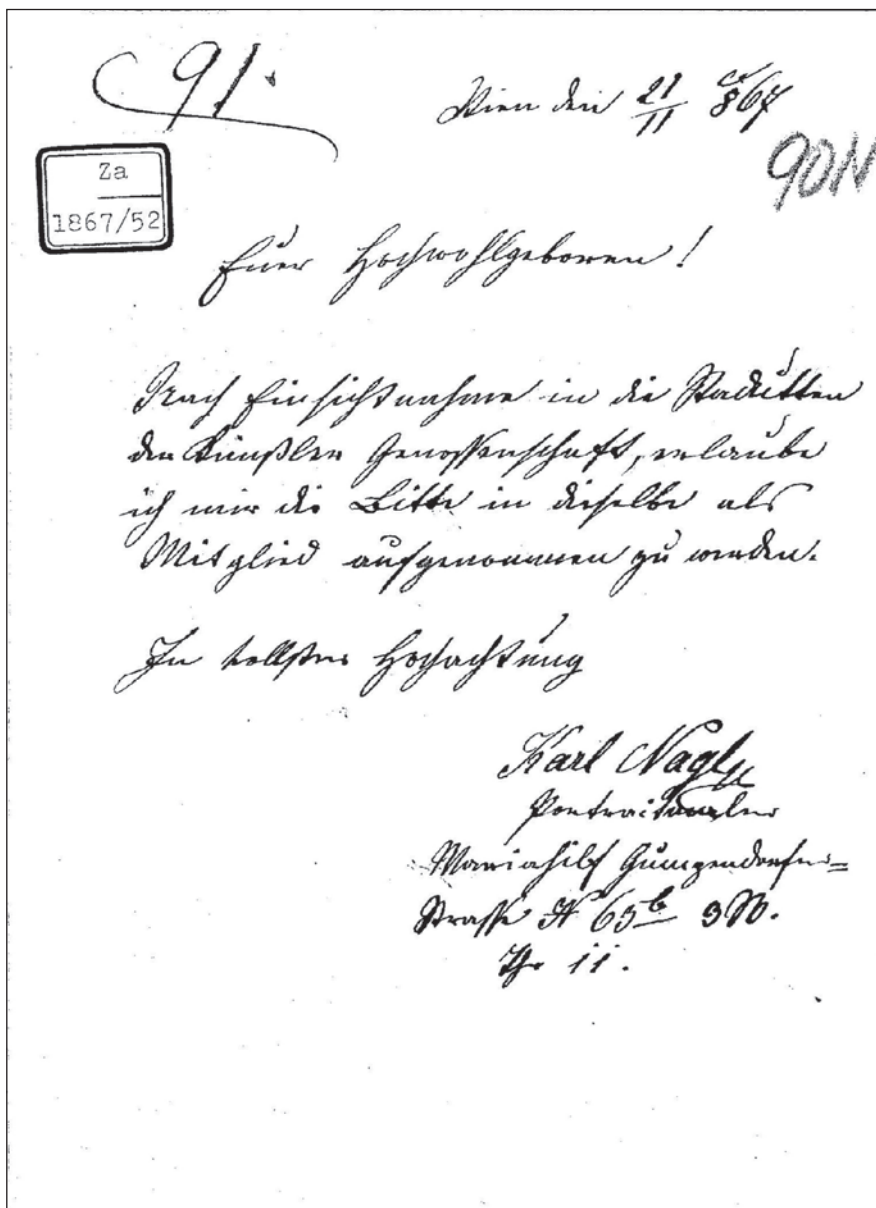 91.
Wien den 21/11 867
90N
Za
1867/52
Euer Hochwohlgeboren!
Nach Einsichtnahme in die Stadutten
der Künstler Genossenschaft, erlaube
ich mir die Bitte in dieselbe als
Mitglied aufgenommen zu werden.
In vollster Hochachtung
Karl Nagl
Portraitmaler
Mariahilf Gumpendorfer=
Strasse N 65b 3 St.
Th. 11.